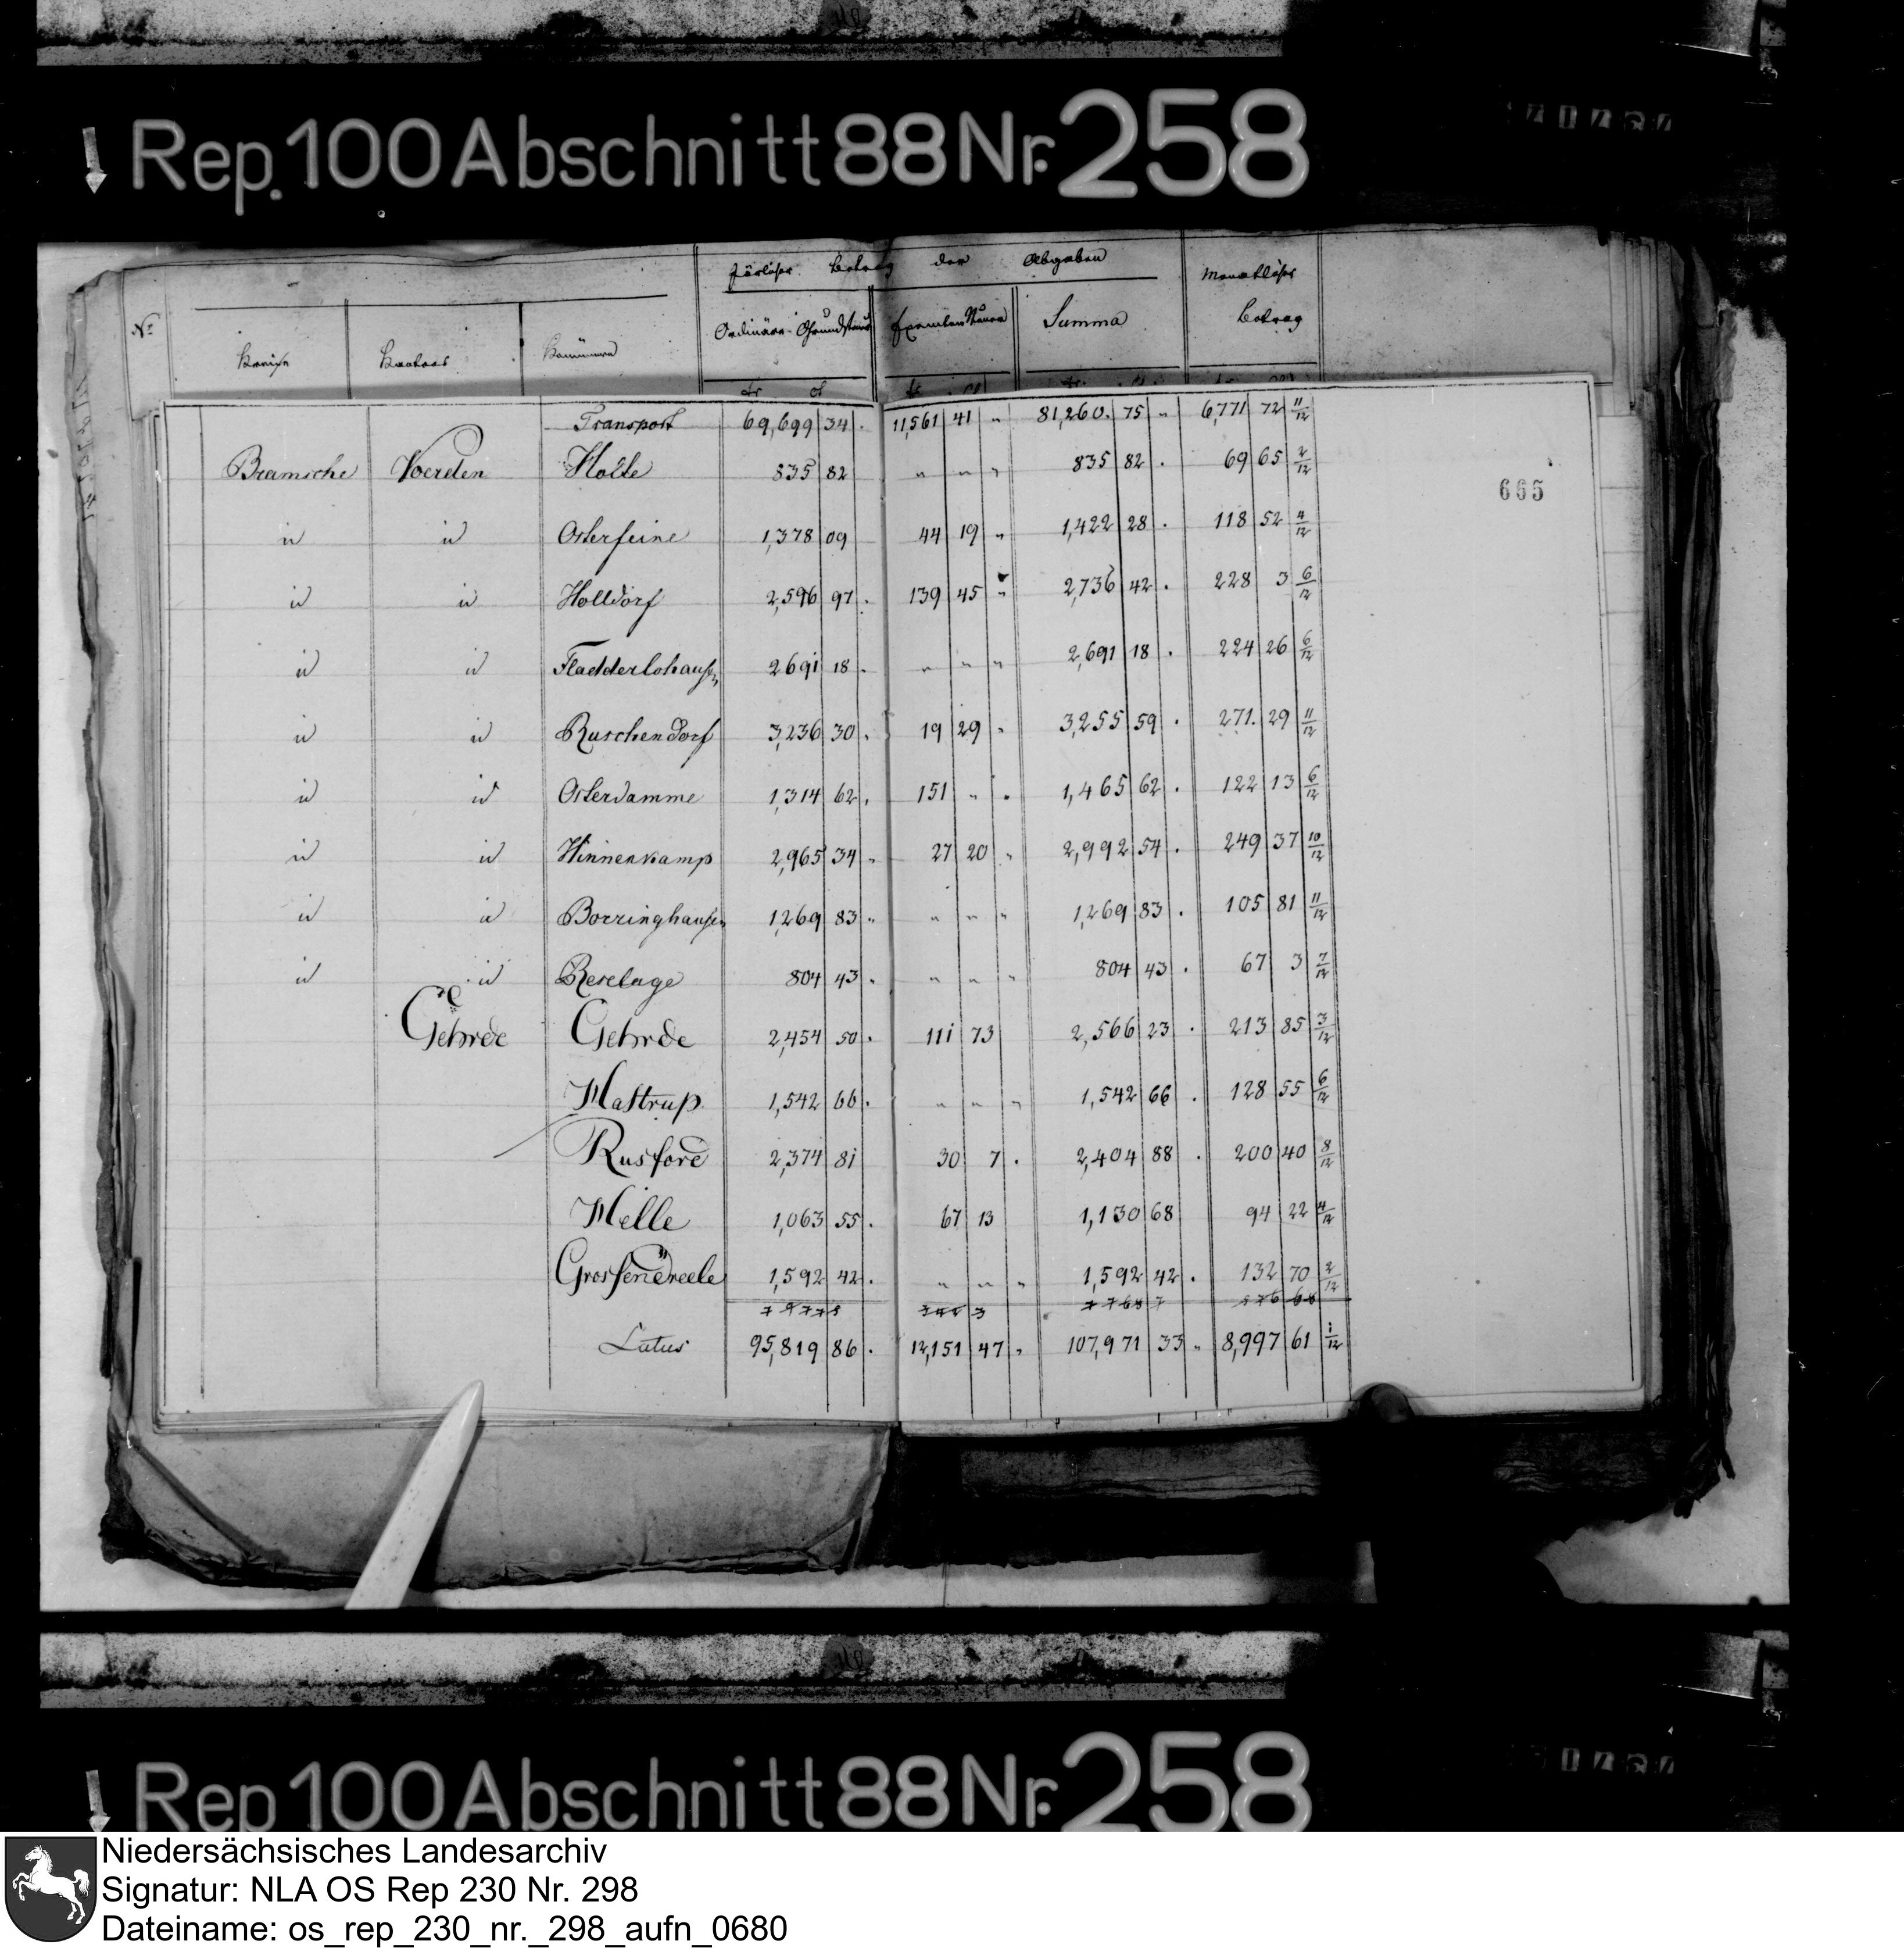 Rep. 100 Abschnitt 88 Nr. 258
Jährlicher Betrag der Abgaben Monatlicher
No Ordinäre Grundsteuer Exemten Steuer Summa Betrag
Kreise Kantons
fr ct fr ct fr ct fr ct
Transport 69,699 34 . 11,561 41 „ 81,260. 75 „ 6,771 72 11/12
Bramsche Voerden Holte 835 82 „ „ „ 835 82 . 69 65 2/12
665
id id Osterfeine 1,378 09 44 19 „ 1,422 28 . 118 52 4/12
id id Holldorf 2,596 97 . 139 45 „ 2,736 42 . 228 3 6/12
id id Fladderlohausen 2691 18 . „ „ „ 2,691 18 . 224 26 6/12
id id Ruschendorf 3,236 30 . 19 29 „ 3,255 59 . 271. 29 11/12
id id Osterdamme 1,314 62 . 151 „ . 1,465 62 . 122 13 6/12
id id Hinnenkamp 2,965 34 „ 27 20 „ 2,992 54 . 249 37 10/12
id id Borringhausen 1,269 83 „ „ „ „ 1,269 83 . 105 81 11/12
id id Reselage 804 43 . „ „ „ 804 43 . 67 3 7/12
Gehrde Gehrde 2,454 50 . 111 73 2,566 23 . 213 85 3/12
Hastrup 1,542 66 . „ „ „ 1,542 66 . 128 55 6/12
Rusfort 2,374 81 30 7 . 2,404 88 . 200 40 8/12
Helle 1,063 55 . 67 13 1,130 68 94 22 4/12
Grossendreele 1,592 42 . „ „ „ 1,592 42 . 132 70 2/12
Latus 95,819 86 . 12,151 47 „ 107,971 33 „ 8,997 61 1/12
Rep 100 Abschnitt 88 Nr. 258
Niedersächsisches Landesarchiv
Signatur: NLA OS Rep 230 Nr. 298
Dateiname: os_rep_230_nr._298_aufn_0680